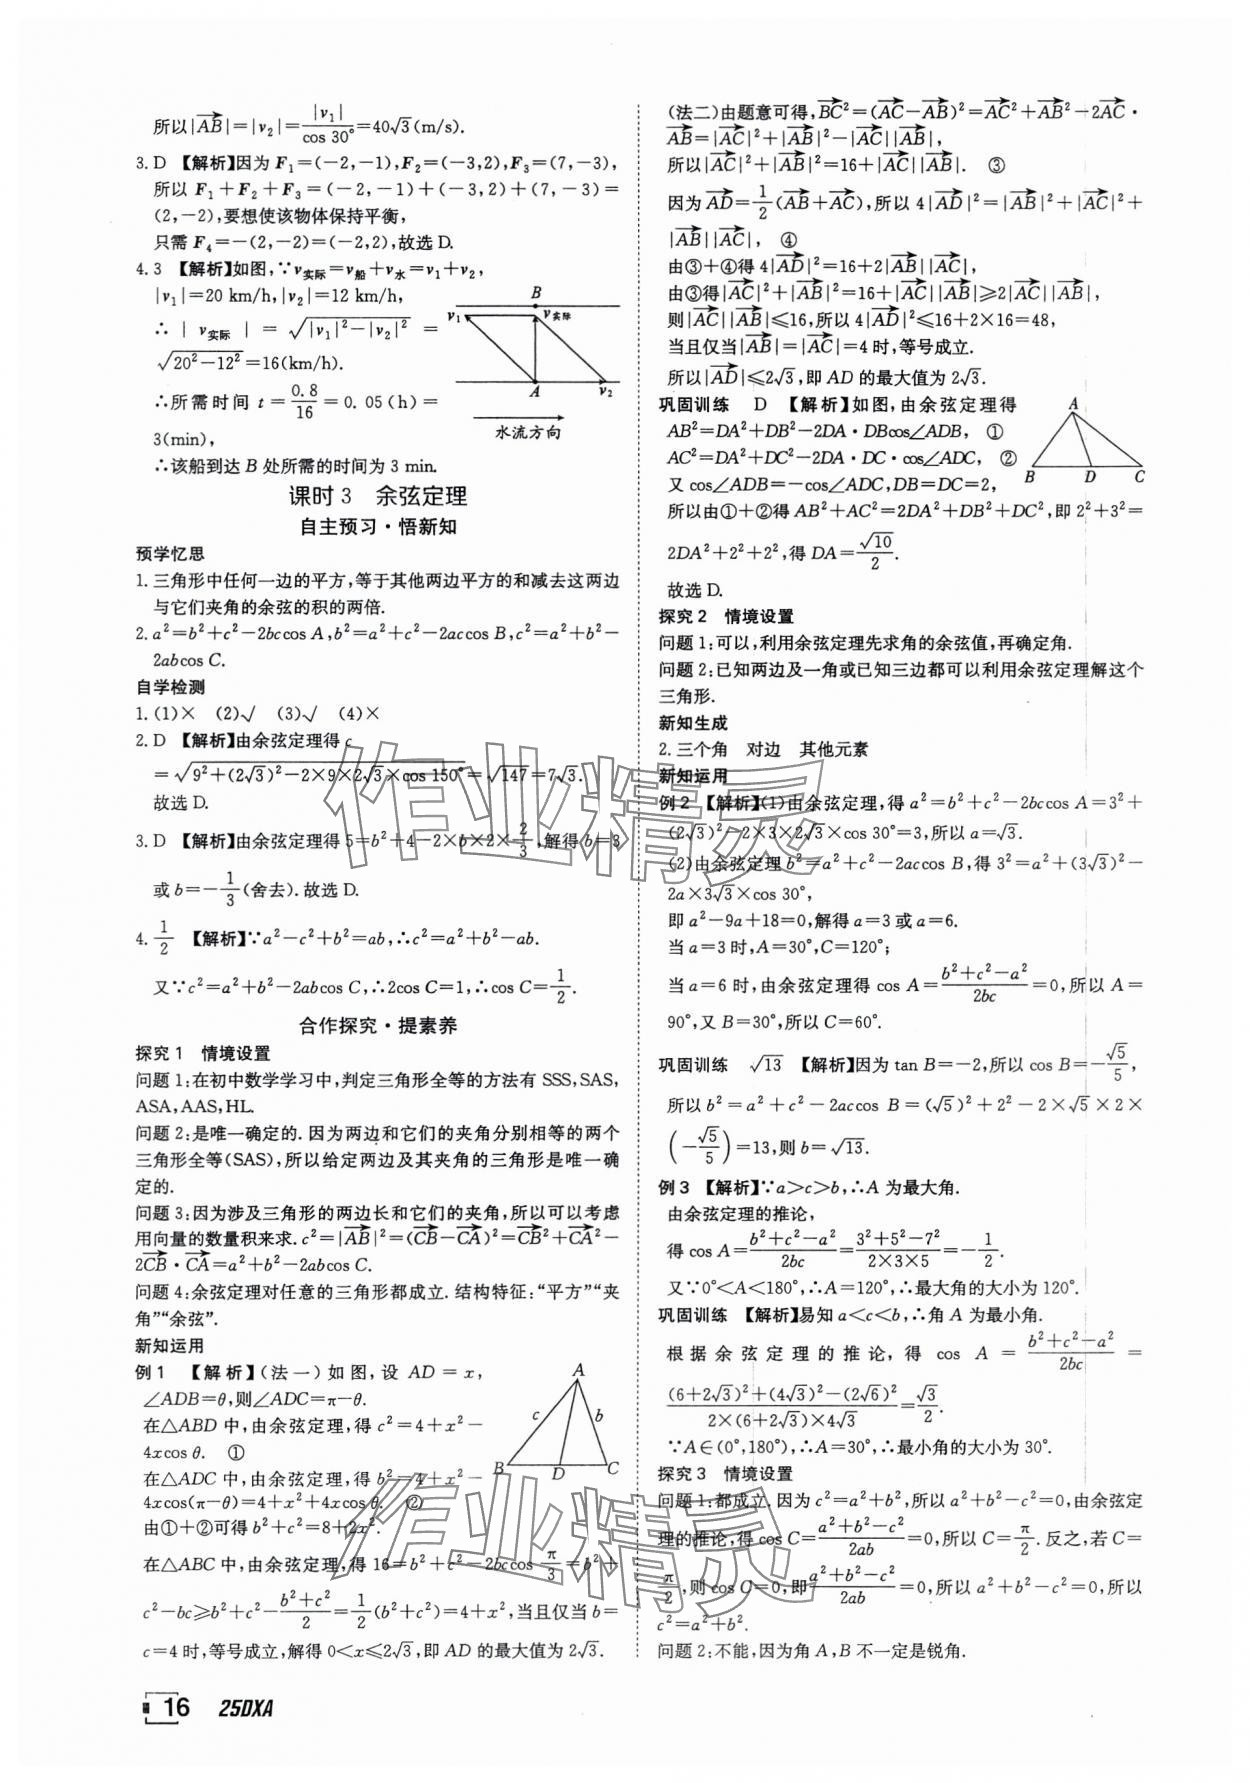 所以|AB|=|v₂|=|v₁|/cos 30°=40√3(m/s).
3. D 【解析】因为 F₁=(-2,-1),F₂=(-3,2),F₃=(7,-3),
所以 F₁+F₂+F₃=(-2,-1)+(-3,2)+(7,-3)=
(2,-2),要想使该物体保持平衡,
只需 F₄=-(2,-2)=(-2,2),故选 D.
4. 3 【解析】如图,∵v实际=v船+v水=v₁+v₂,
|v₁|=20 km/h,|v₂|=12 km/h,
∴|v实际|=√(|v₁|²-|v₂|²)=
√(20²-12²)=16(km/h).
∴所需时间 t=0.8/16=0.05(h)=
3(min),
∴该船到达 B 处所需的时间为 3 min.
B
v₁
v实际
A
v₂
水流方向
课时 3 余弦定理
自主预习·悟新知
预学忆思
1. 三角形中任何一边的平方,等于其他两边平方的和减去这两边
与它们夹角的余弦的积的两倍.
2. a²=b²+c²-2bccos A,b²=a²+c²-2accos B,c²=a²+b²-
2abcos C.
自学检测
1. (1)× (2)√ (3)√ (4)×
2. D 【解析】由余弦定理得 c
=√(9²+(2√3)²-2×9×2√3×cos 150°)=√147=7√3.
故选 D.
3. D 【解析】由余弦定理得 5=b²+4-2×b×2×2/3,解得 b=3
或 b=-1/3(舍去).故选 D.
4. 1/2 【解析】∵a²-c²+b²=ab,∴c²=a²+b²-ab.
又∵c²=a²+b²-2abcos C,∴2cos C=1,∴cos C=1/2.
合作探究·提素养
探究 1 情境设置
问题 1:在初中数学学习中,判定三角形全等的方法有 SSS,SAS,
ASA,AAS,HL.
问题 2:是唯一确定的.因为两边和它们的夹角分别相等的两个
三角形全等(SAS),所以给定两边及其夹角的三角形是唯一确
定的.
问题 3:因为涉及三角形的两边长和它们的夹角,所以可以考虑
用向量的数量积来求.c²=|AB|²=(CB-CA)²=CB²+CA²-
2CB·CA=a²+b²-2abcos C.
问题 4:余弦定理对任意的三角形都成立.结构特征:“平方”“夹
角”“余弦”.
新知运用
例 1 【解析】(法一)如图,设 AD=x,
∠ADB=θ,则∠ADC=π-θ.
在△ABD 中,由余弦定理,得 c²=4+x²-
4xcos θ. ①
在△ADC 中,由余弦定理,得 b²=4+x²-
4xcos(π-θ)=4+x²+4xcos θ. ②
由①+②可得 b²+c²=8+2x².
在△ABC 中,由余弦定理,得 16=b²+c²-2bccos π/3=b²+
c²-bc≥b²+c²-(b²+c²)/2=1/2(b²+c²)=4+x²,当且仅当 b=
c=4 时,等号成立,解得 0<x≤2√3,即 AD 的最大值为 2√3.
A
c
b
B
D
C
(法二)由题意可得,BC²=(AC-AB)²=AC²+AB²-2AC·
AB=|AC|²+|AB|²-|AC||AB|,
所以|AC|²+|AB|²=16+|AC||AB|. ③
因为AD=1/2(AB+AC),所以 4|AD|²=|AB|²+|AC|²+
|AB||AC|, ④
由③+④得 4|AD|²=16+2|AB||AC|,
由③得|AC|²+|AB|²=16+|AC||AB|≥2|AC||AB|,
则|AC||AB|≤16,所以 4|AD|²≤16+2×16=48,
当且仅当|AB|=|AC|=4 时,等号成立.
所以|AD|≤2√3,即 AD 的最大值为 2√3.
巩固训练 D 【解析】如图,由余弦定理得
AB²=DA²+DB²-2DA·DBcos∠ADB, ①
AC²=DA²+DC²-2DA·DC·cos∠ADC, ②
又 cos∠ADB=-cos∠ADC,DB=DC=2,
所以由①+②得 AB²+AC²=2DA²+DB²+DC²,即 2²+3²=
2DA²+2²+2²,得 DA=√10/2.
故选 D.
A
B
D
C
探究 2 情境设置
问题 1:可以,利用余弦定理先求角的余弦值,再确定角.
问题 2:已知两边及一角或已知三边都可以利用余弦定理解这个
三角形.
新知生成
2. 三个角 对边 其他元素
新知运用
例 2 【解析】(1)由余弦定理,得 a²=b²+c²-2bccos A=3²+
(2√3)²-2×3×2√3×cos 30°=3,所以 a=√3.
(2)由余弦定理 b²=a²+c²-2accos B,得 3²=a²+(3√3)²-
2a×3√3×cos 30°,
即 a²-9a+18=0,解得 a=3 或 a=6.
当 a=3 时,A=30°,C=120°;
当 a=6 时,由余弦定理得 cos A=(b²+c²-a²)/2bc=0,所以 A=
90°,又 B=30°,所以 C=60°.
巩固训练 √13 【解析】因为 tan B=-2,所以 cos B=-√5/5,
所以 b²=a²+c²-2accos B=(√5)²+2²-2×√5×2×
(-√5/5)=13,则 b=√13.
例 3 【解析】∵a>c>b,∴A 为最大角.
由余弦定理的推论,
得 cos A=(b²+c²-a²)/2bc=(3²+5²-7²)/(2×3×5)=-1/2.
又∵0°<A<180°,∴A=120°,∴最大角的大小为 120°.
巩固训练 【解析】易知 a<c<b,∴角 A 为最小角.
根据余弦定理的推论,得 cos A=(b²+c²-a²)/2bc=
((6+2√3)²+(4√3)²-(2√6)²)/(2×(6+2√3)×4√3)=√3/2.
∵A∈(0°,180°),∴A=30°,∴最小角的大小为 30°.
探究 3 情境设置
问题 1:都成立.因为 c²=a²+b²,所以 a²+b²-c²=0,由余弦定
理的推论,得 cos C=(a²+b²-c²)/2ab=0,所以 C=π/2.反之,若 C=
π/2,则 cos C=0,即(a²+b²-c²)/2ab=0,所以 a²+b²-c²=0,所以
c²=a²+b².
问题 2:不能,因为角 A,B 不一定是锐角.
16 25DXA
作业精灵
作业精灵